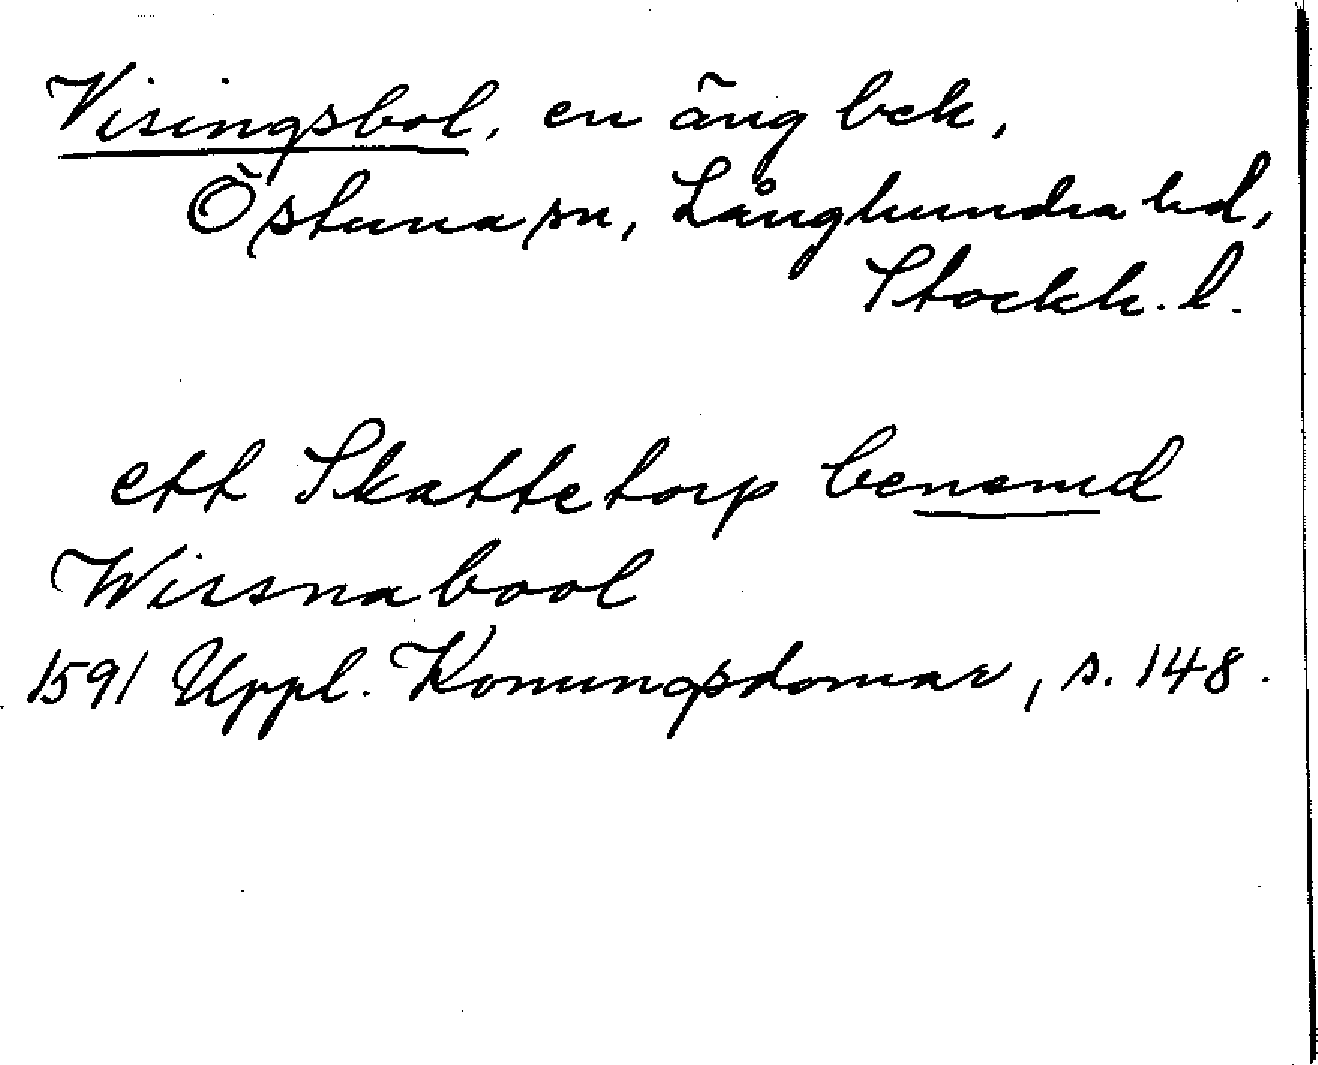 Visingsbol, en äng bek,
Östuna sn, Långhundra hd,
Stockh. l.
ett Skattetorp benemd
Wissnabool
1591 Uppl. Konungsdomar, s. 148.